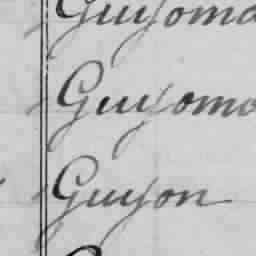 Guyoma
Guyoma
Guyon